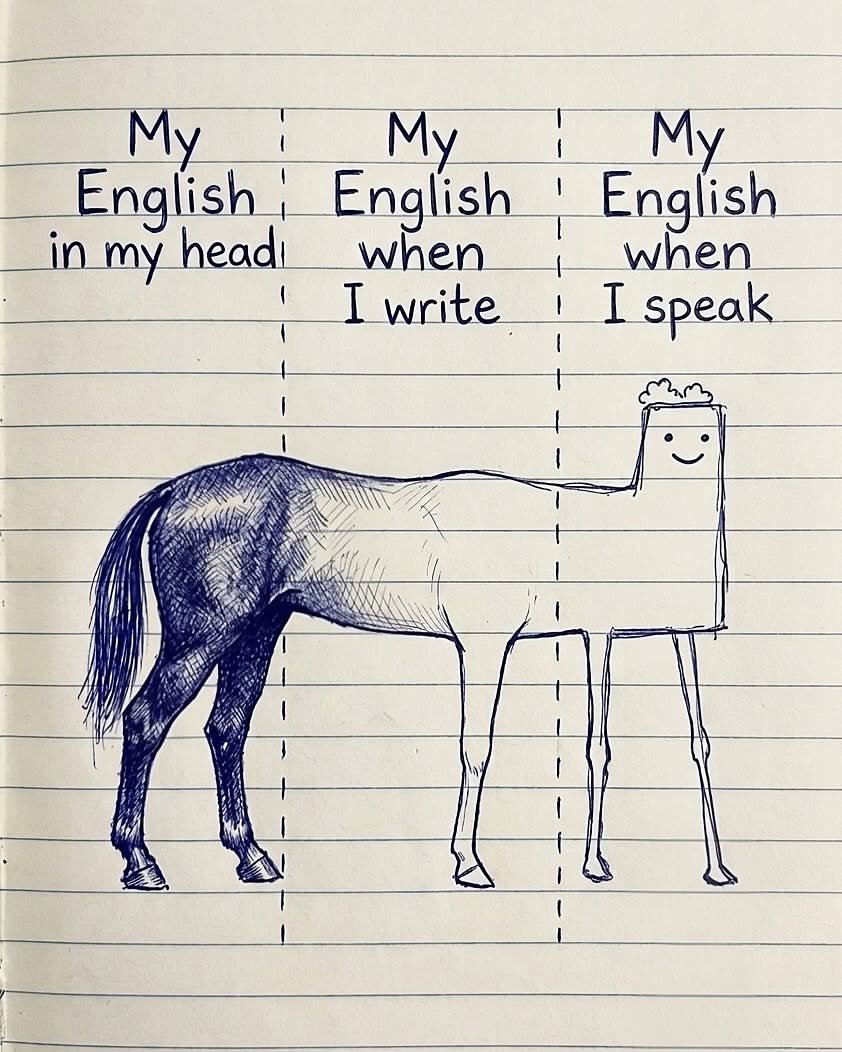 My
English
in my head
My
English
when
I write
My
English
when
I speak